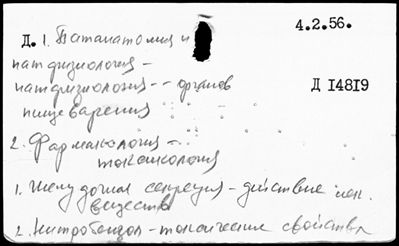 4.2.56.
Д. 1. Патанатомия и
патфизиология –
патфизиология -- органов
Д 14819
пищеварения
2. Фармакология –
токсикология
1. Желудочная секреция – действие лек.
вещества
2. Нитробензол – токсические свойства